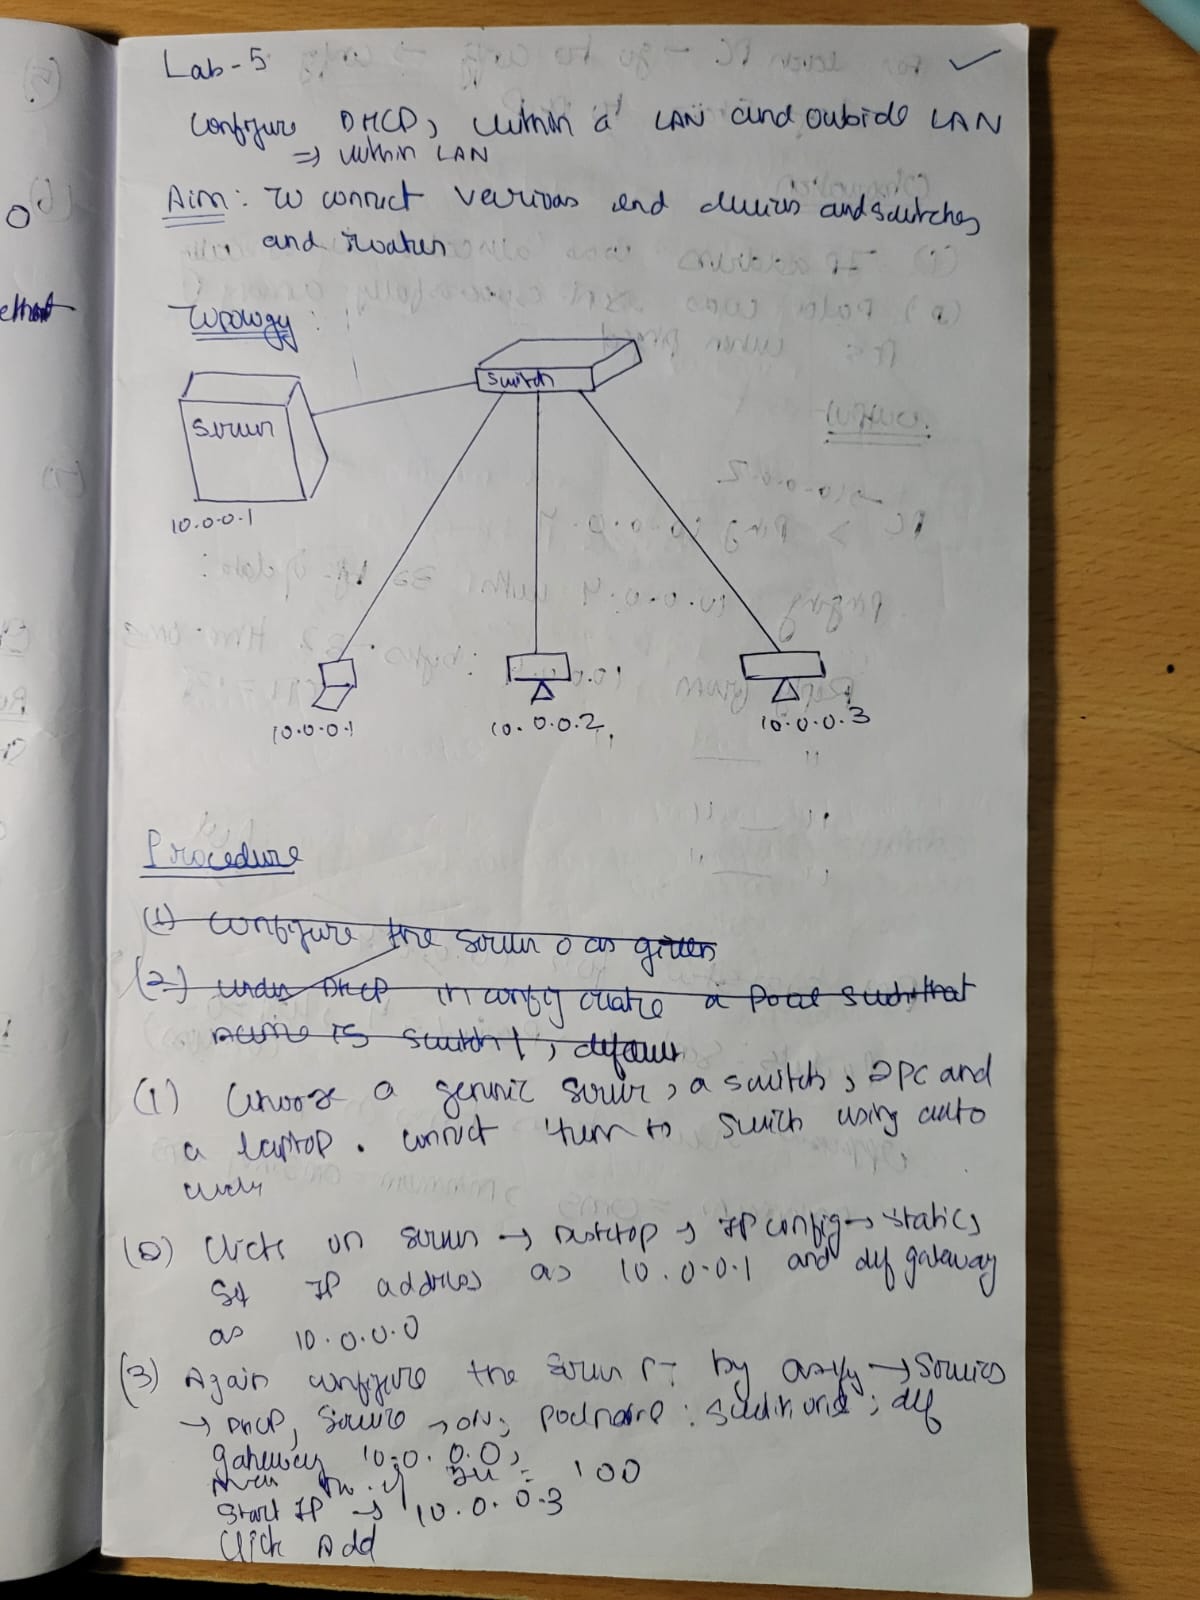 Lab-5
Configure DHCP, within a LAN and outside LAN
=> within LAN
Aim: To connect various end devices and switches
and routers
Topology:
Switch
Server
10.0.0.1
10.0.0.1
10.0.0.2
10.0.0.3
Procedure
(1) Configure the server 0 as given
(2) Under DHCP in config create a pool such that
name is switch1, default
(1) Choose a generic server, a switch, 2PC and
a laptop. connect them to switch using auto
(2) Click on server → Desktop → IP config → static,
Set IP address as 10.0.0.1 and def gateway
as 10.0.0.0
(3) Again configure the server by → Services
→ DHCP, service → ON, poolname: switch one; def
gateway 10.0.0.0,
no. of = 100
Start IP → 10.0.0.3
Click Add